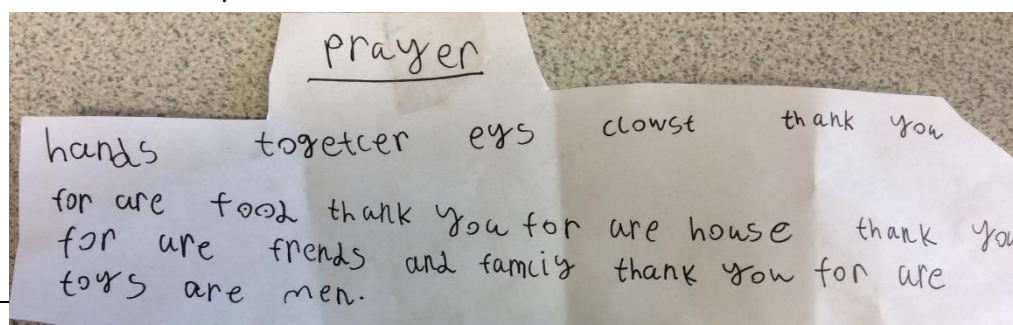 prayer
hands togetcer eys clowst thank you
for are food thank you for are house thank you
for are frends and famciy thank you for are
toys are men.